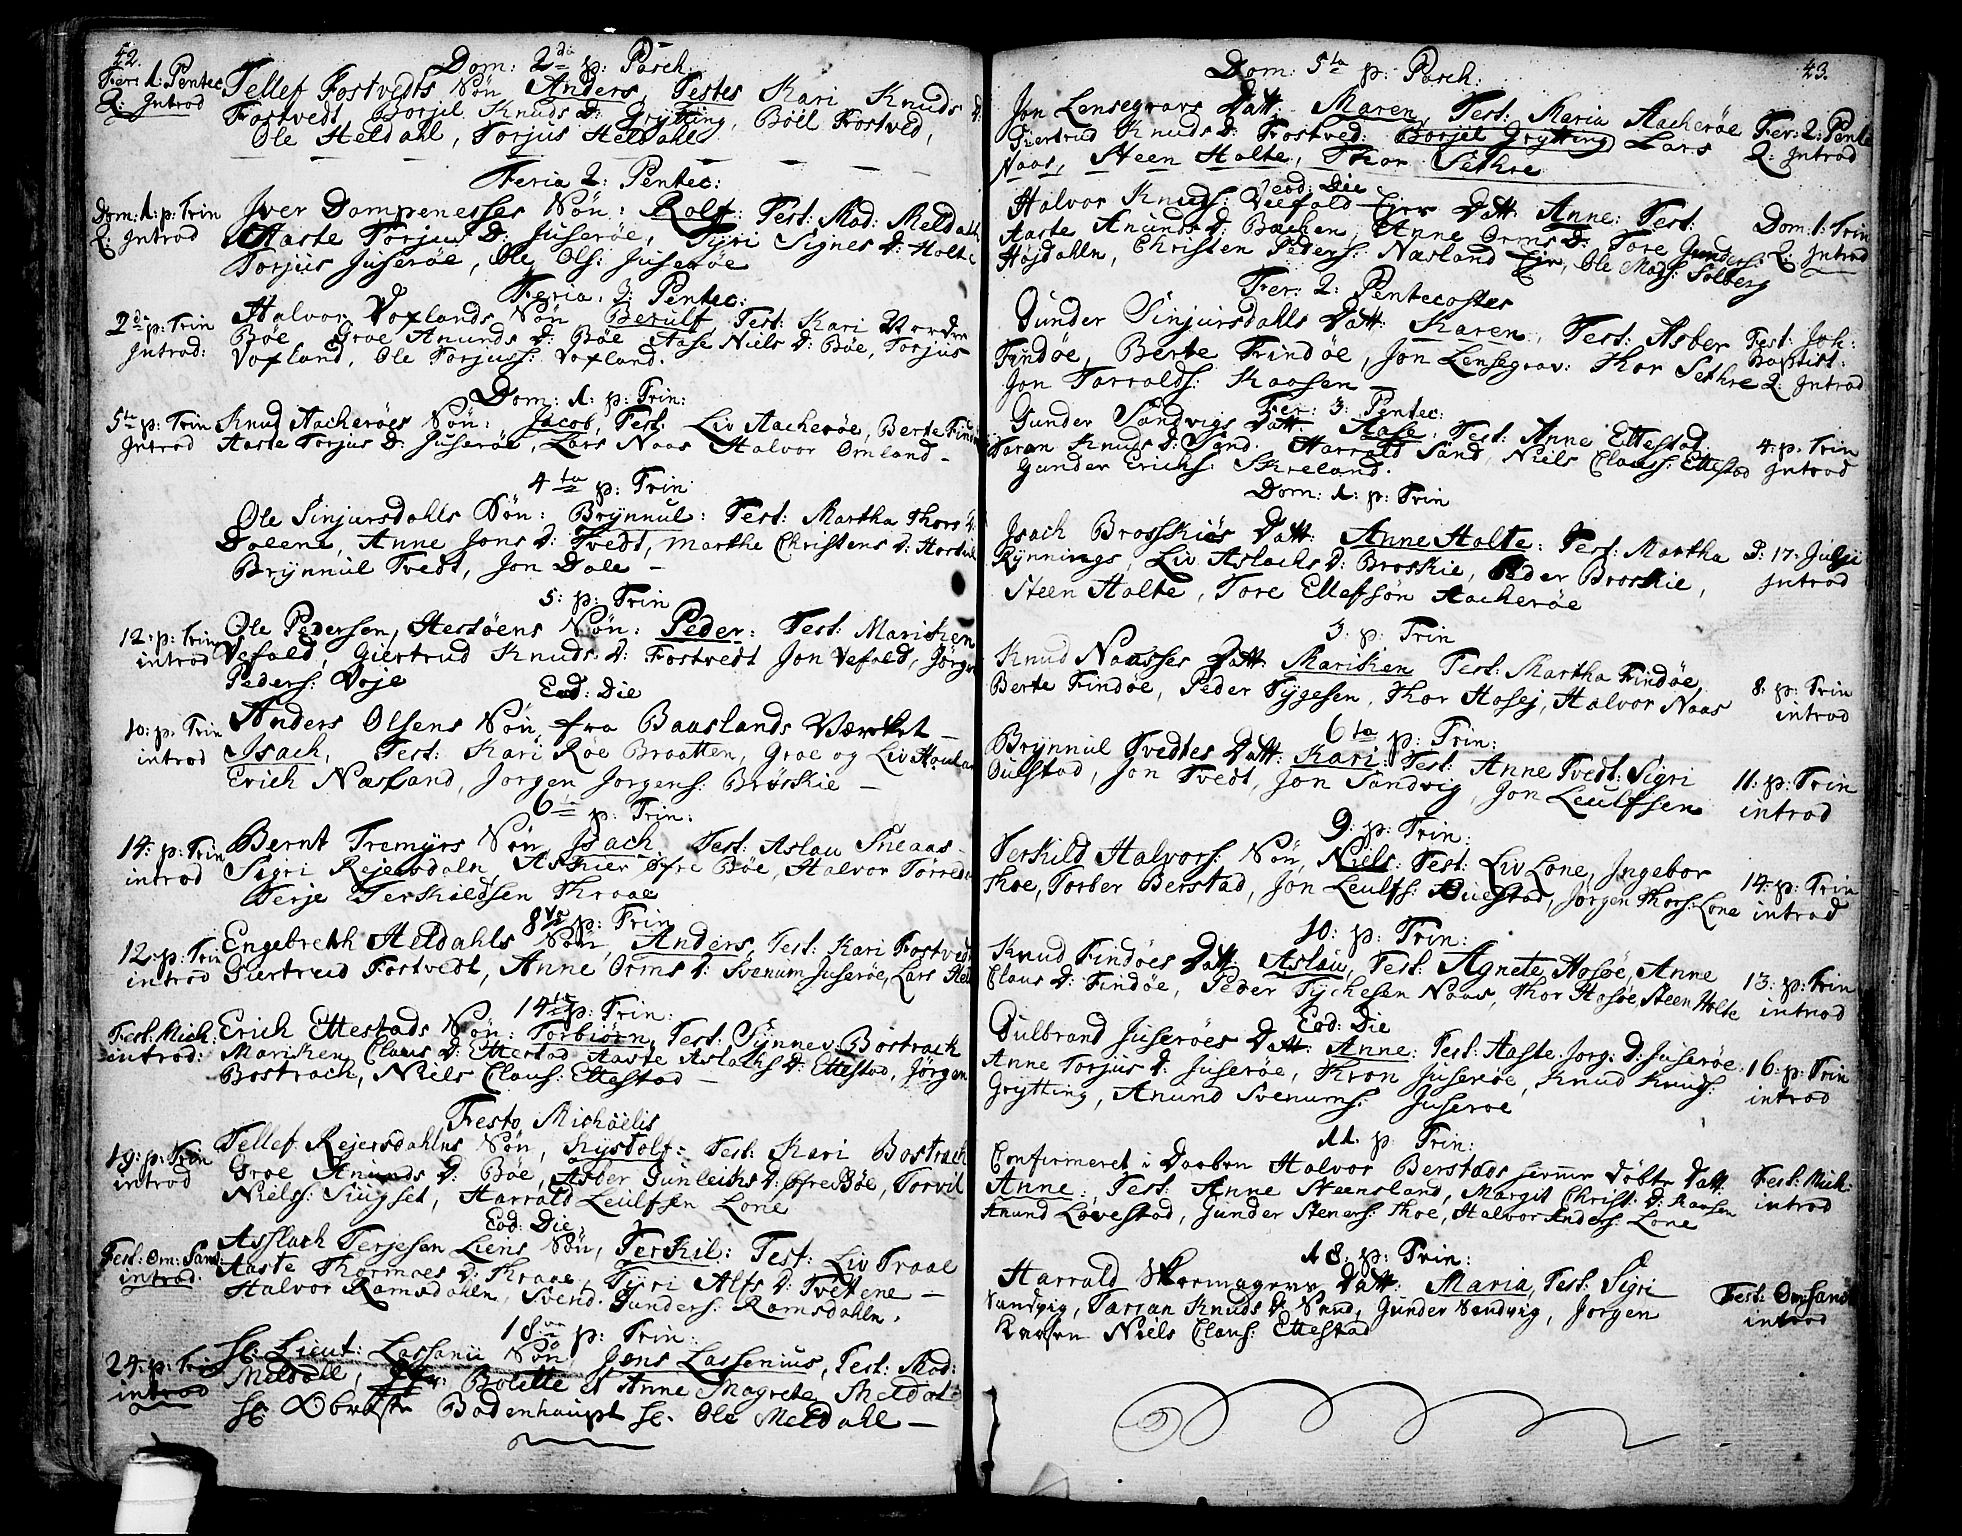 42.
Dom: 2da p: Pasch:
Fer: 1: Pentec
Q: Introd
Tellef Fostvedts Søn Anders, Testes Kari Knuds d:
Fostvedt, Borjil Knuds d: Grytting, Böel Fostved,
Ole Heldahl, Torjus Heldahl
Feria 2: Pentec:
Dom: 1: p: Trin
Q: Introd
Iver Dompenesses Søn: Rolf: Test: Mad: Meldahl
Aaste Torjus D: Juserøe, Tyri Signes D: Holte
Torjus Juserøe, Ole Ols: Juserøe
Feria: 3: Pentec:
2da p: Trin
Introd:
Halvor Voxlands Søn Berulf, Test: Kari Nordre
Bøe Groe Anunds D: Bøe Aase Niels D: Bøe, Torjus
Voxland, Ole Torjuss: Voxland.
Dom: 1: p: Trin:
5ta p: Trin
Introd
Knud Aacherøes Søn: Jacob, Test: Liv Aacherøe, Berte Find
Aaste Torjus D: Juserøe, Lars Naas Halvor Omland –
4ta p: Trin:
Ole Sinjursdahls Søn: Brynnul: Test: Martha Thors d:
Dolene, Anne Jons D: Tvedt, Marthe Christens D:
Brynnul Tvedt, Jon Dale –
5: p: Trin
12: p: Trin
introd
Ole Pedersen, Hestøens Søn: Peder: Test: Marisken
Vefald, Giertrud Knuds D: Fostvedt Jon Vefald, Jørgen
Peders: Voje
Eod: Die
10: p: Trin
introd
Anders Olsens Søn, fra Baaslands Værket –
Isach, Test: Kari Røe Braatten, Groe og Liv
Erich Næsland, Jørgen Jørgens: Brøskie –
6ta p: Trin:
14: p: Trin
introd
Bernt Tremyrs Søn Isach, Test: Aslau Sneaas
Sigri Rejersdaln, Askier øfre Bøe, Halvor
Terje Terkildsen Thraae
8va p: Trin
12: p: Trin
introd
Engebreth Heldahls Søn, Anders, Test: Kari Fostvedt
Giertrud Fostvedt, Anne Orms D: Svenum Juserøe, Lars
14ta p: Trin:
Fest: Mich:
introd:
Erich Ettestads Søn: Torbiørn, Test: Synnev Bostrach
Marisken Claus D: Ettestad Aaste Aslachs D: Ettestad, Jørgen
Bostrach, Niels Claus: Ettestad –
Festo Michäelis
19: p: Trin
introd
Tellef Rejersdahlns Søn, Kystolf: Test: Kari Bostrach
Groe Anunds D: Bøe, Asber Gunleiks D: øfre Bøe, Torvil
Niels: Siugset, Harrald Leulfsen Lone
Eod: Die:
Fest: Om: Sanct:
introd.
Asslach Terjesen Liens Søn, Terkil: Test: Liv Traae
Aaste Thormoes D: Thraae, Tyri Alfs D: Tvetene –
Halvor Ramsdahln, Svend Gunders: Ramsdahln.
18va p: Trin:
24: p: Trin
introd
Sr: Lieut: Lassanii Søn Jens Lassenius, Test: Mad:
Meldahl, Jfr: Bolette et Anne Magrete Meldahl
Sr: Oberster Bodenhaupt Sr. Ole Meldahl –
43.
Dom: 5ta p: Pasch:
Jon Lensegravs Datt: Maren, Test: Maria Aacherøe
Giertrud Knuds D: Fostved: Borjil Grytting Lars
Naas, Steen Holte, Thor Sethre
Fer: 2: Pente
Q: Introd
eod: Die
Halvor Knuds: Veefald Ejer Datt: Anne: Test:
Aaste Anunds D: Bachen, Anne Orms D: Tore Gunders:
Højdahln, Christen Peders: Næsland Eje, Ole Mads: Solberg
Dom: 1: Trin
Q: Introd
Fer: 2: Pentecostes
Gunder Sinjursdahls Datt: Karen, Test: Asber
Findøe, Berte Findøe, Jon Lensegrav: Thor Sethre
Jon Tarralds: Kaasen –
Fest: Joh:
Baptist:
Q: Introd
Fer: 3: Pentec:
Gunder Sandvigs Datt: Aase, Test: Anne Ettestad
Taran Knuds D: Sand. Harrald Sand, Niels Claus: Ettestad
Gunder Erichs: Skreland.
4: p: Trin
Introd
Dom: 1: p: Trin
Isach Brosskiøs Datt: Anne Holte: Test: Martha
Rynnings, Liv Aslachs D: Broskie, Peder Broskie,
Steen Holte, Tore Ellefsøn Aacherøe
d: 17: Julii
Introd
3: p: Trin
Knud Naasses Datt: Marisken Test: Martha Findøe
Berte Findøe, Peder Tygesen, Thor Hosej, Halvor Naas
8: p: Trin
introd
6ta p: Trin:
Brynnul Tvedtes Datt: Kari: Test: Anne Tvedt: Sigri
Ouestad, Jon Tvedt, Jon Sandvig, Jon Leulfsen
11: p: Trin
introd
9: p: Trin:
Terkild Halvors: Søn, Niels: Test: Liv Lone, Ingebor
Thoe, Torber Berstad, Jon Leulfs: Ouestad, Jørgen Thors: Lone
14: p: Trin
introd
10: p: Trin:
Knud Findøes Datt: Aslau, Test: Agnete Hosøe, Anne
Claus D: Findøe, Peder Tychesen Naas, Thor Hosøe, Steen Holte
13: p: Trin
introd
Eod: Die
Gulbrand Juserøes Datt: Anne: Test: Aaste Jorg: D: Juserøe
Anne Torjus D: Juserøe, Thron Juserøe, Knud Knuds:
Grytting, Anund Svenums: Juserøe
16: p: Trin
introd
11. p: Trin:
Confirmeret i Daaben Halvor Berstads hiemme døbte Datt:
Anne:, Test: Anne Steensland, Margit Christ: D: Kaasen
Anund Lovestad, Gunder Steners: Thoe, Halvor Anders: Lone
Fest: Mich:
introd
18: p: Trin:
Harrald Datt: Maria, Test: Sigri
Sandvig, Tarran Knuds D: Sand, Gunder Sandvig, Jørgen
Kaasen Niels Claus: Ettestad
Fest: Om: Sanct
introd